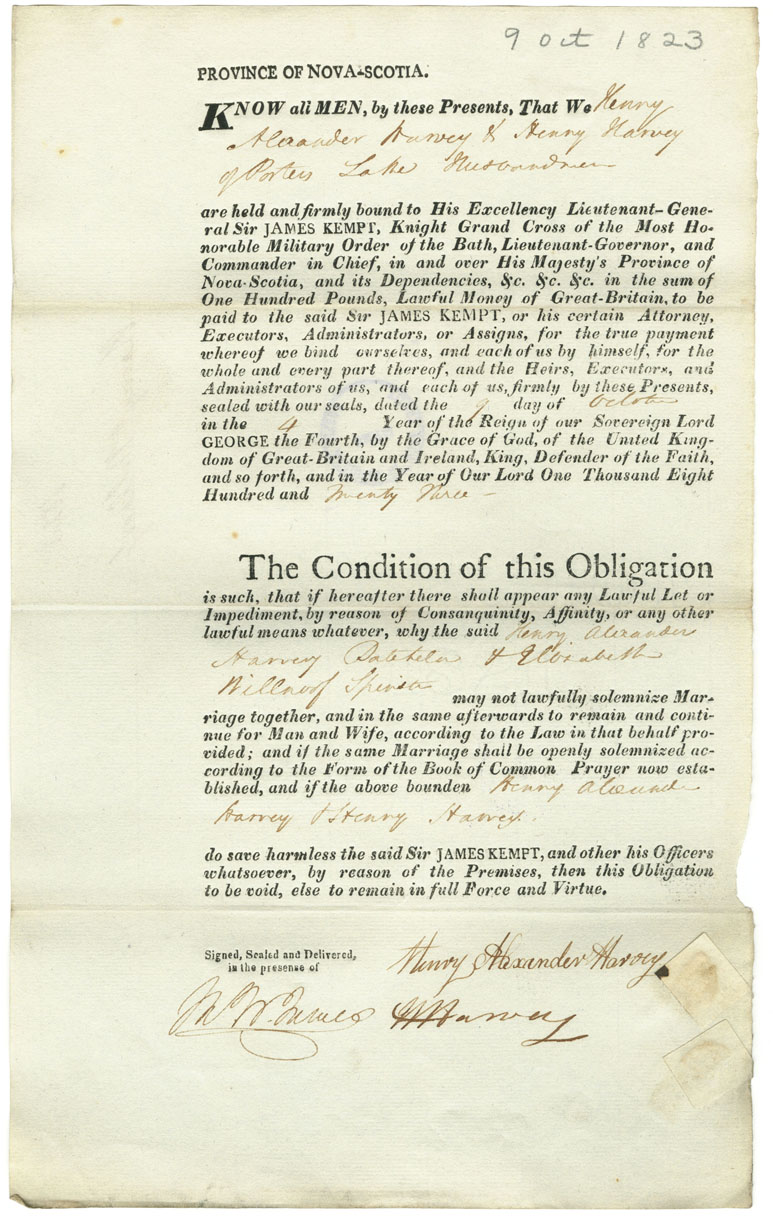 9 Oct 1823
PROVINCE OF NOVA-SCOTIA.
KNOW all MEN, by these Presents, That We Henry
Alexander Harvey & Henry Harvey
of Porters Lake Husbandmen
are held and firmly bound to His Excellency Lieutenant-Gene-
ral Sir JAMES KEMPT, Knight Grand Cross of the Most Ho-
norable Military Order of the Bath, Lieutenant-Governor, and
Commander in Chief, in and over His Majesty's Province of
Nova-Scotia, and its Dependencies, &c. &c. &c. in the sum of
One Hundred Pounds, Lawful Money of Great-Britain, to be
paid to the said Sir JAMES KEMPT, or his certain Attorney,
Executors, Administrators, or Assigns, for the true payment
whereof we bind ourselves, and each of us by himself, for the
whole and every part thereof, and the Heirs, Executors, and
Administrators of us, and each of us, firmly by these Presents,
sealed with our seals, dated the 9 day of October
in the 4 Year of the Reign of our Sovereign Lord
GEORGE the Fourth, by the Grace of God, of the United King-
dom of Great-Britain and Ireland, King, Defender of the Faith,
and so forth, and in the Year of Our Lord One Thousand Eight
Hundred and Twenty Three –
The Condition of this Obligation
is such, that if hereafter there shall appear any Lawful Let or
Impediment, by reason of Consanquinity, Affinity, or any other
lawful means whatever, why the said Henry Alexander
Harvey Batchelor & Elizabeth
Spinster
may not lawfully solemnize Mar-
riage together, and in the same afterwards to remain and conti-
nue for Man and Wife, according to the Law in that behalf pro-
vided; and if the same Marriage shall be openly solemnized ac-
cording to the Form of the Book of Common Prayer now esta-
blished, and if the above bounden Henry Alexander
Harvey & Henry Harvey.
do save harmless the said Sir JAMES KEMPT, and other his Officers
whatsoever, by reason of the Premises, then this Obligation
to be void, else to remain in full Force and Virtue.
Signed, Sealed and Delivered,
in the presence of
Henry Alexander Harvey
Harvey